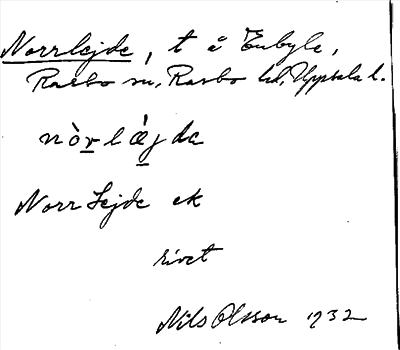 Norrlejde, t å Enbyle,
Rasbo sn, Rasbo hd, Uppsala l.
nòrlæ̀jda
Norr Lejde ek
rivet
Nils Olsson 1932